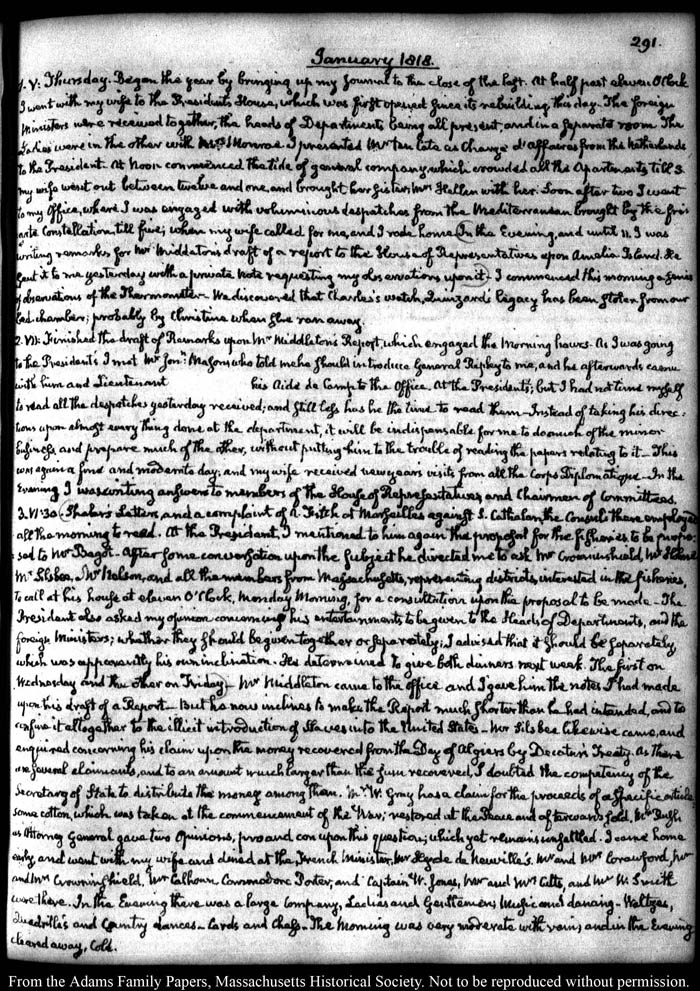 291.
January 1818.
1. V: Thursday. Began the year by bringing up my Journal to the close of the last. At half past eleven O'Clock
I went with my wife to the Presidents House, which was first opened since its rebuilding this day. The foreign
Ministers were received together, the heads of Departments being all present, and in a separate room. The
Ladies were in the other with Mrs Monroe. I presented Mr ten Cate as Chargé d'affaires from the Netherlands
to the President. At Noon commenced the tide of general company, which crowded all the apartments till 3.
my wife went out between twelve and one, and brought her sister, Mrs Hellen with her. Soon after two I went
to my Office, where I was engaged with voluminous despatches from the Mediterranean brought by the fri-
gate Constellation, till five; when my wife called for me, and I rode home. In the Evening, and until 11, I was
writing remarks, for Mr Middleton's draft of a report to the House of Representatives upon Amelia Island. He
sent it to me yesterday with a private Note requesting my observations upon it. I commenced this morning a series
of observations of the Thermometer. We discovered that Charles's watch, Quinzard's legacy has been stolen from our
bed chamber; probably by Christine when she ran away.
2. VI: Finished the draft of Remarks upon Mr Middleton's Report, which engaged the Morning hours. As I was going
to the President's I met Mr Jona: Mason, who told me he should introduce General Ripley to me, and he afterwards came
with him and Lieutenant his Aide de Camp to the Office. At the Presidents; but I had not time myself
to read all the despatches yesterday received; and still less has he the time to read them. Instead of taking his direc-
tions upon almost every thing done at the department, it will be indispensable for me to do much of the minor
business, and prepare much of the other, without putting him to the trouble of reading the papers relating to it. This
was again a fine and moderate day, and my wife received new years visits from all the Corps Diplomatique. In the
Evening I was writing answers to members of the House of Representatives and Chairmen of Committees.
3. VI:30. Thaler's Letters, and a complaint of A. Fitch at Marseilles against S. Cathalan, the Consul there employed
all the morning to read. At the President, I mentioned to him again the proposal for the fisheries to be propo-
sed to Mr Bagot. After some conversation upon the subject he directed me to ask Mr Crowninshield, Mr
Mr Silsbee, Mr Nelson, and all the members from Massachusetts, representing districts, interested in the fisheries,
to call at his house at eleven O'Clock, Monday Morning, for a consultation upon the proposal to be made. The
President also asked my opinion concerning his entertainments to be given to the Heads of Departments, and the
foreign Ministers; whether they should be given together or separately. I advised that it should be separately
which was apparently his own inclination. He determined to give both dinners next week. The first on
Wednesday and the other on Friday. Mr Middleton came to the office and I gave him the notes I had made
upon his draft of a Report. But he now inclines to make the Report much shorter than he had intended, and to
confine it altogether to the illicit introduction of Slaves into the United States. Mr Silsbee likewise came, and
enquired concerning his claim upon the money recovered from the Dey of Algiers by Decatur's Treaty. As there
are several claimants, and to an amount much larger than the sum recovered, I doubted the competency of the
Secretary of State to distribute the money among them. Mr W. Gray has a claim for the proceeds of a specific article
some cotton, which was taken at the commencement of the War; restored at the Peace and afterwards sold. Mr Rush
as Attorney General gave two Opinions, pro and con upon this question; which yet remains unsettled. I came home
early, and went with my wife and dined at the French Minister, Mr Hyde de Neuville's. Mr and Mrs Crawford, Mr
and Mrs Crowninshield, Mr Calhoun Commodore Porter, and Captain W. Jones, Mr and Mrs Cutts, and Mr W. Smith
were there. In the Evening there was a large Company, Ladies and Gentlemen; Music and dancing. Waltzes,
Quadrilles and Country dances. Cards and Chess. The Morning was very moderate with rain; and in the Evening
cleared away, Cold.
From the Adams Family Papers, Massachusetts Historical Society. Not to be reproduced without permission.